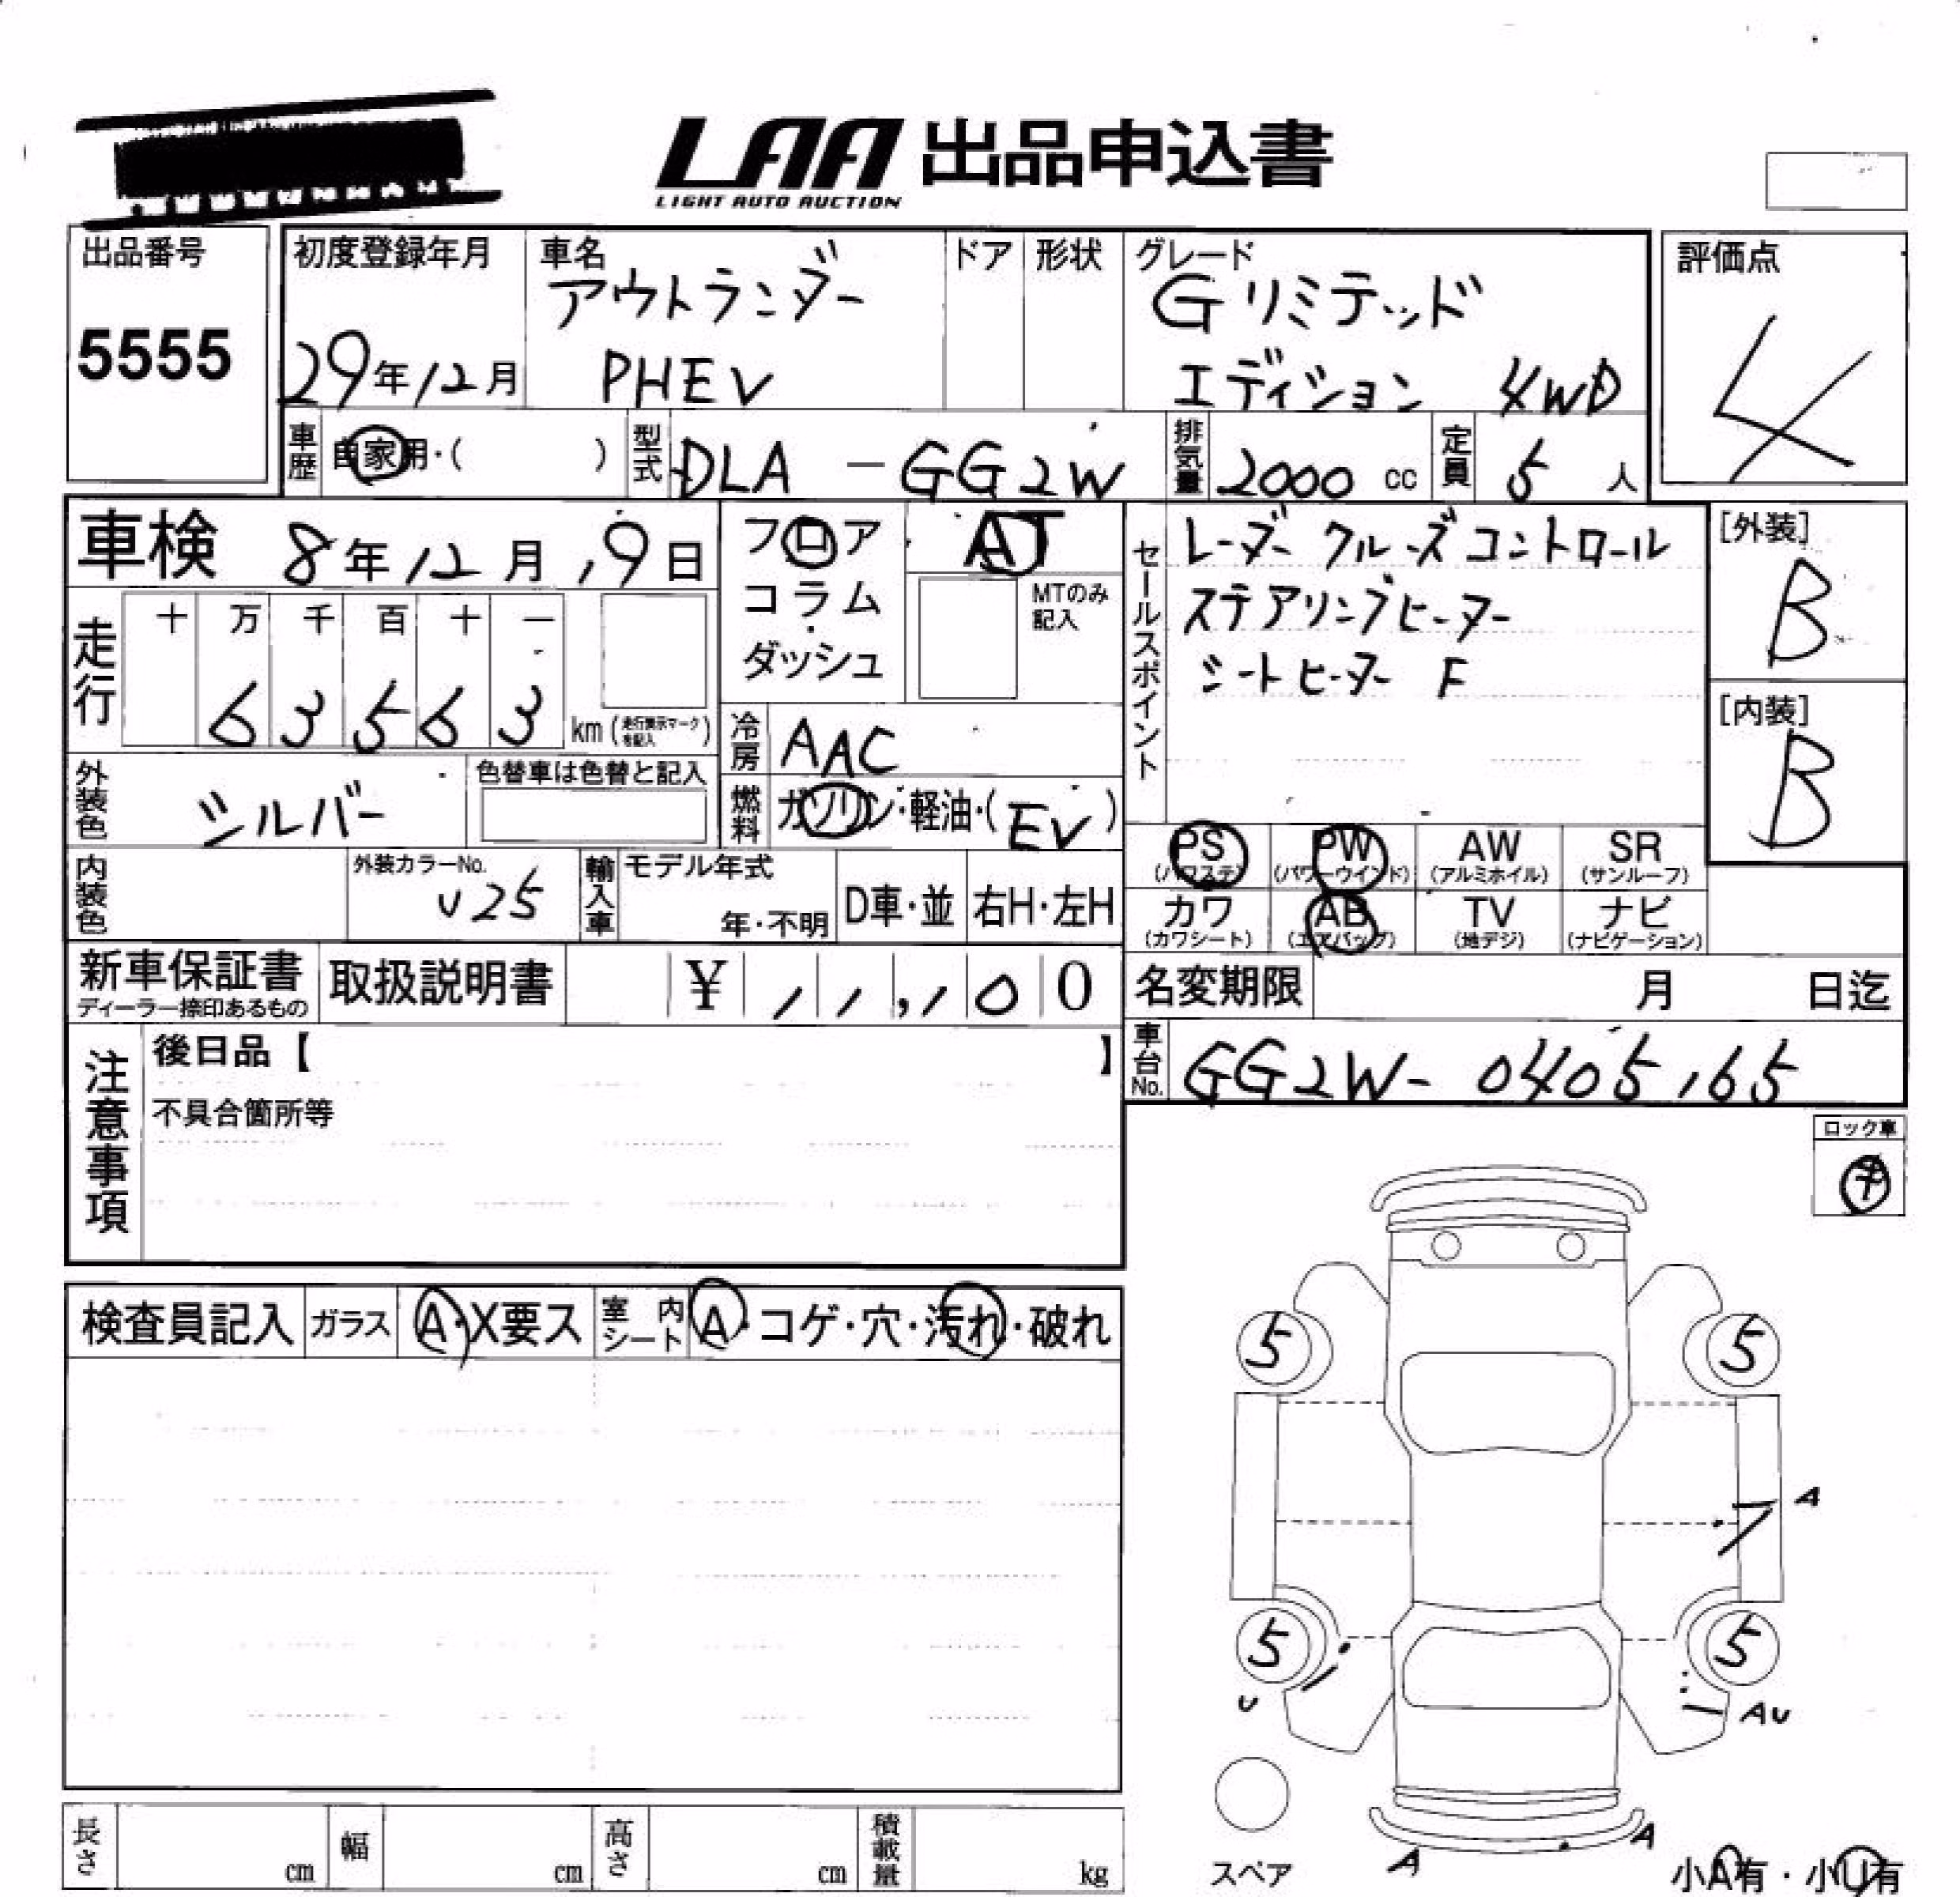 LAA 出品申込書
LIGHT AUTO AUCTION
出品番号
5555
初度登録年月
29年12月
車名
アウトランダー
PHEV
ドア
形状
グレード
Gリミテッド
エディション 4WD
評価点
4
車歴
自家用・( )
型式
DLA-GG2W
排気量
2000 cc
定員
5 人
車検 8年12月19日
フロア
コラム
・
ダッシュ
AT
MTのみ
記入
セールスポイント
レーダークルーズコントロール
ステアリングヒーター
シートヒーター F
[外装]
B
[内装]
B
走行
十 万 千 百 十 一
6 3 5 6 3
km (走行表示マークを記入)
冷房
AAC
燃料
ガソリン・軽油・(EV)
外装色
シルバー
色替車は色替と記入
内装色
外装カラーNo.
U25
輸入車
モデル年式
年・不明
D車・並
右H・左H
PS
(パワステ)
PW
(パワーウインド)
AW
(アルミホイル)
SR
(サンルーフ)
カワ
(カワシート)
AB
(エアバッグ)
TV
(地デジ)
ナビ
(ナビゲーション)
新車保証書
ディーラー捺印あるもの
取扱説明書
¥ 1 1 , 1 0 0
名変期限 月 日迄
車台No.
GG2W-0405165
注意事項
後日品【 】
不具合箇所等
ロック車
検査員記入
ガラス
A・X要ス
室内シート
A・コゲ・穴・汚れ・破れ
5
5
A
5
5
U
AU
A
A
スペア
小A有・小U有
長さ cm
幅 cm
高さ cm
積載量 kg